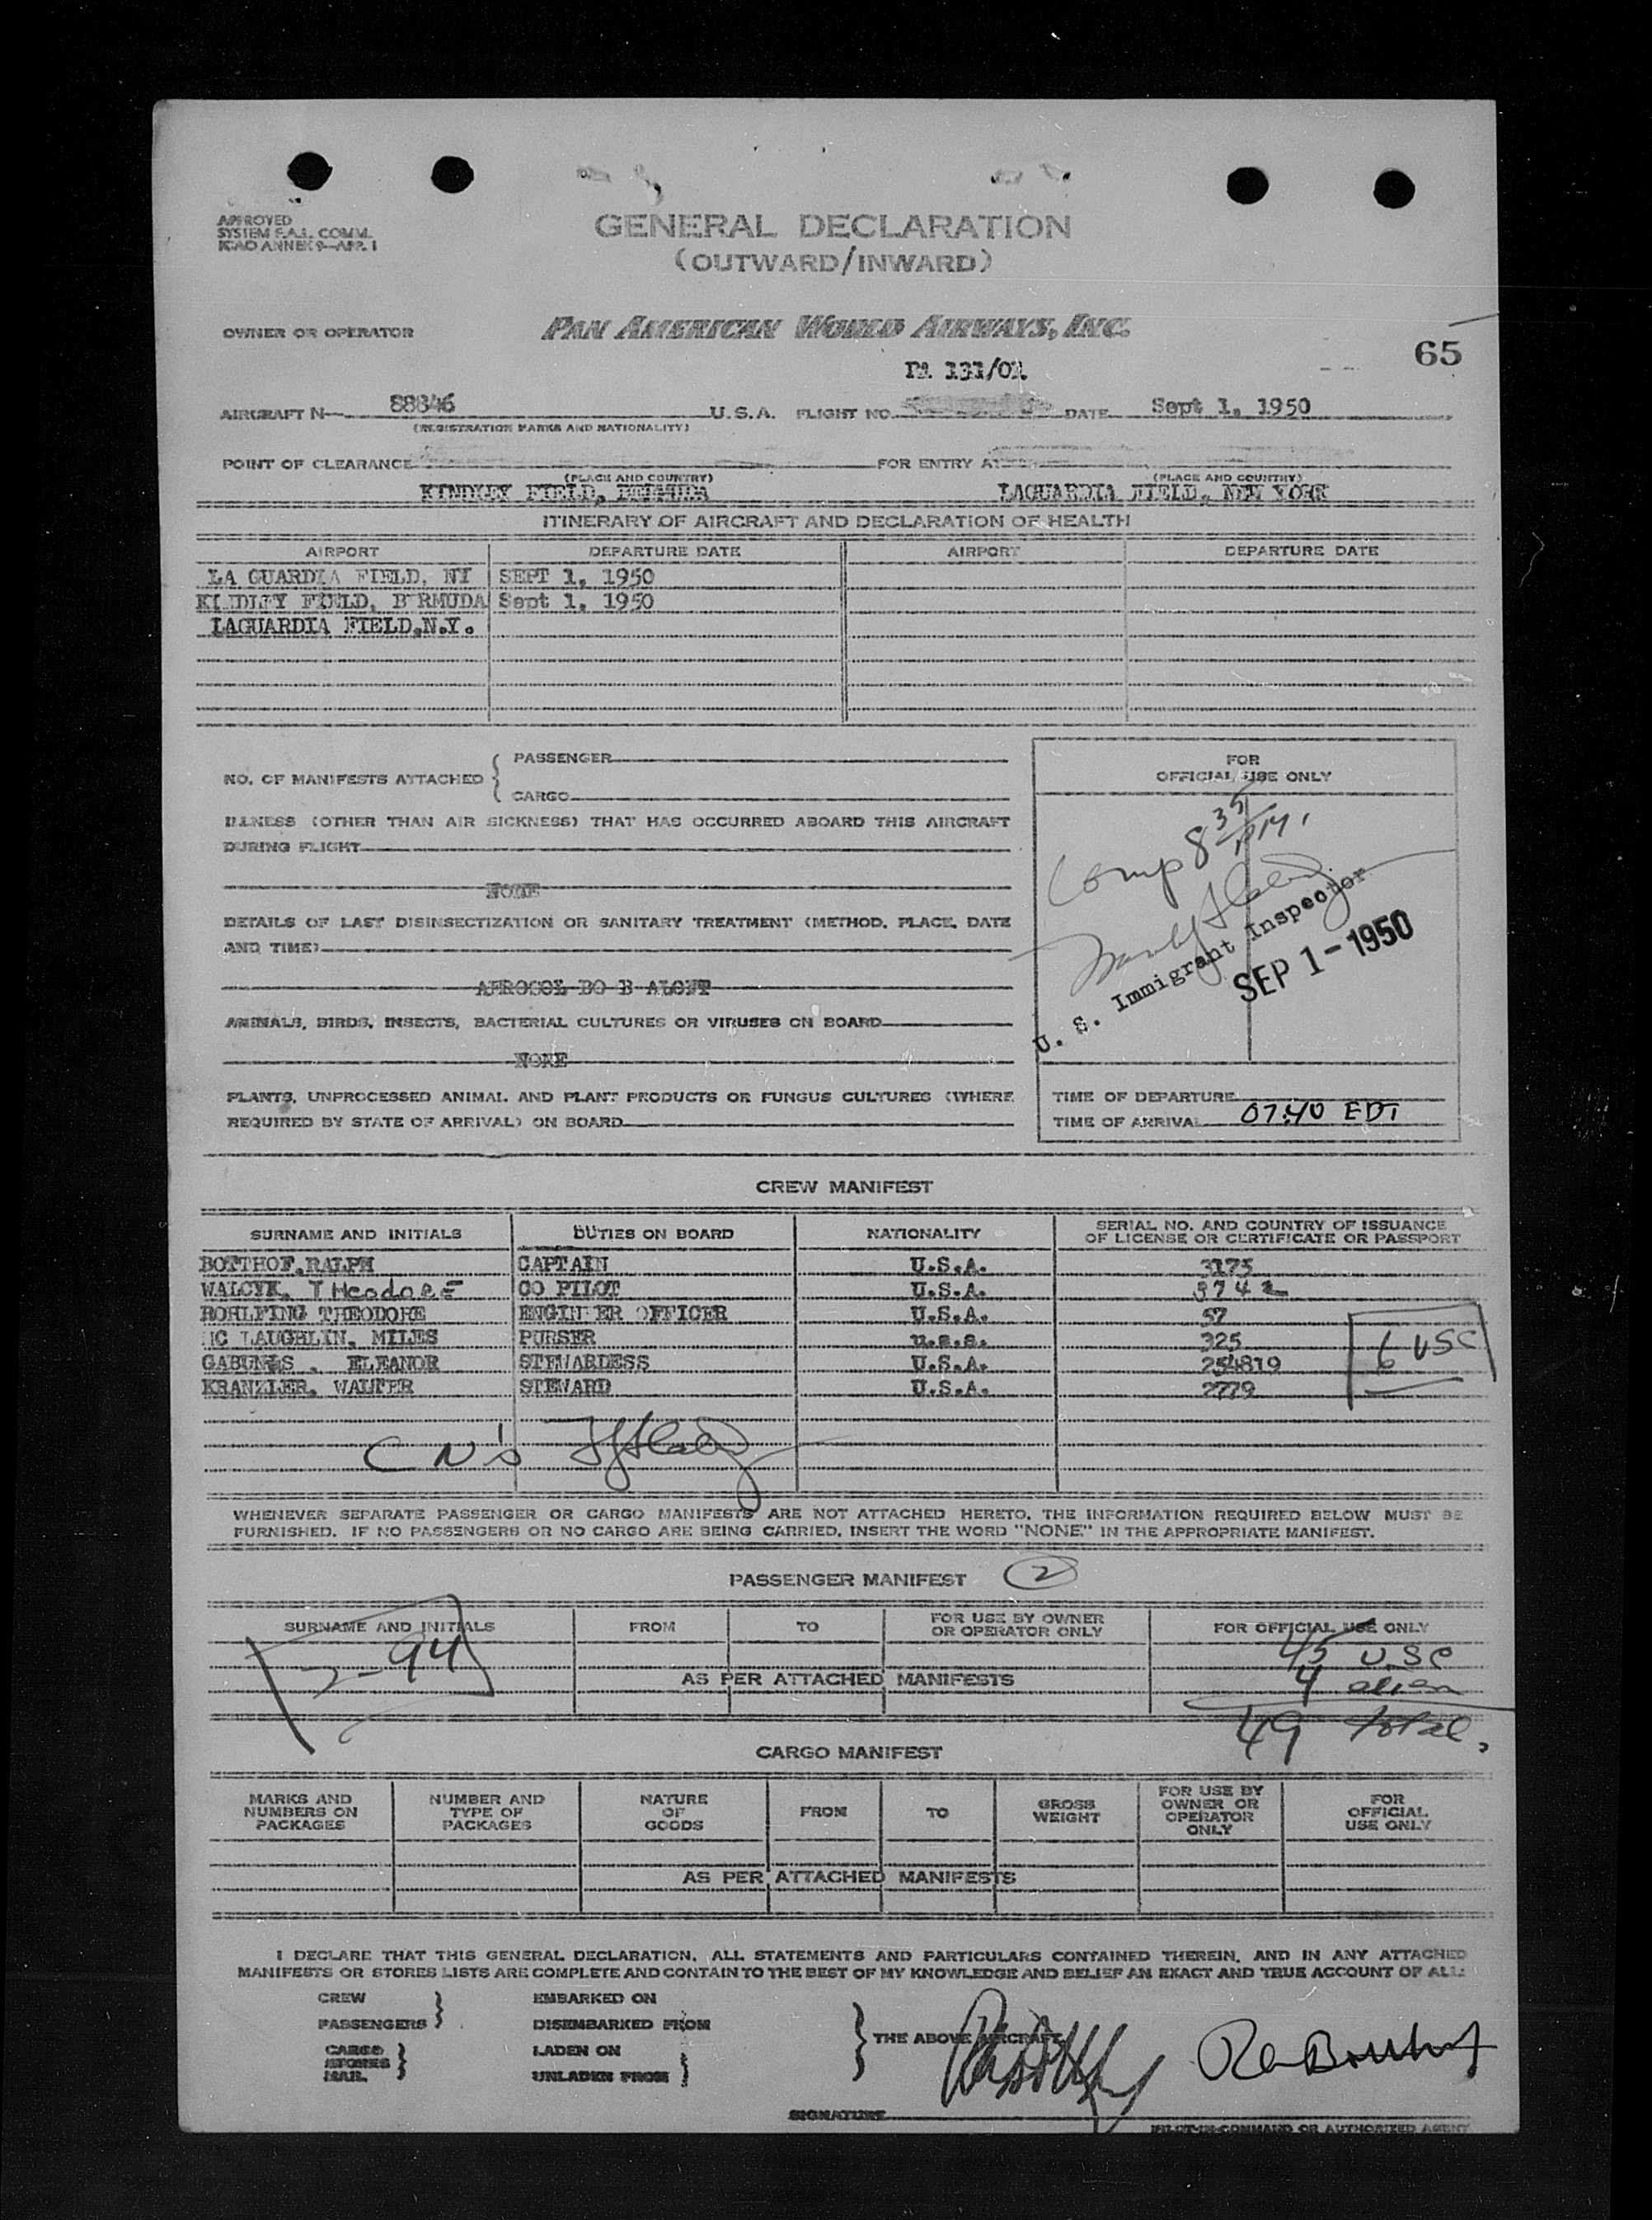 APPROVED
SYSTEM F.A.L. COMM.
ICAO ANNEX 9—APP. 1
GENERAL DECLARATION
(OUTWARD/INWARD)
OWNER OR OPERATOR PAN AMERICAN WORLD AIRWAYS, INC.
65
131/01
AIRCRAFT N— 88846 U.S.A. FLIGHT NO. DATE Sept 1, 1950
(REGISTRATION MARKS AND NATIONALITY)
POINT OF CLEARANCE FOR ENTRY AT
(PLACE AND COUNTRY) (PLACE AND COUNTRY)
KINDLEY FIELD, BERMUDA LAGUARDIA FIELD, NEW YORK
ITINERARY OF AIRCRAFT AND DECLARATION OF HEALTH
AIRPORT DEPARTURE DATE AIRPORT DEPARTURE DATE
LA GUARDIA FIELD, NY SEPT 1, 1950
KINDLEY FIELD, BERMUDA Sept 1, 1950
LAGUARDIA FIELD,N.Y.
NO. OF MANIFESTS ATTACHED { PASSENGER
CARGO
ILLNESS (OTHER THAN AIR SICKNESS) THAT HAS OCCURRED ABOARD THIS AIRCRAFT
DURING FLIGHT
NONE
DETAILS OF LAST DISINSECTIZATION OR SANITARY TREATMENT (METHOD, PLACE, DATE
AND TIME)
AEROSOL BO B ALOFT
ANIMALS, BIRDS, INSECTS, BACTERIAL CULTURES OR VIRUSES ON BOARD
NONE
PLANTS, UNPROCESSED ANIMAL AND PLANT PRODUCTS OR FUNGUS CULTURES (WHERE
REQUIRED BY STATE OF ARRIVAL) ON BOARD
FOR
OFFICIAL USE ONLY
Comp 8 35 PM.
U. S. Immigrant Inspector
SEP 1-1950
TIME OF DEPARTURE
TIME OF ARRIVAL 07:40 EDT
CREW MANIFEST
SURNAME AND INITIALS DUTIES ON BOARD NATIONALITY SERIAL NO. AND COUNTRY OF ISSUANCE OF LICENSE OR CERTIFICATE OR PASSPORT
BOTTHOF,RALPH CAPTAIN U.S.A. 3175
WALCYK, THeodoRE CO PILOT U.S.A. 3742
ROHLFING THEODORE ENGINEER OFFICER U.S.A. 57
MC LAUGHLIN, MILES PURSER u.s.a. 325
GABUNAS , ELEANOR STEWARDESS U.S.A. 254819
KRANZLER, WALTER STEWARD U.S.A. 2779
6 USC
CN's
WHENEVER SEPARATE PASSENGER OR CARGO MANIFESTS ARE NOT ATTACHED HERETO, THE INFORMATION REQUIRED BELOW MUST BE
FURNISHED. IF NO PASSENGERS OR NO CARGO ARE BEING CARRIED, INSERT THE WORD "NONE" IN THE APPROPRIATE MANIFEST.
PASSENGER MANIFEST 2
SURNAME AND INITIALS FROM TO FOR USE BY OWNER OR OPERATOR ONLY FOR OFFICIAL USE ONLY
94
45 USC
AS PER ATTACHED MANIFESTS
4 alien
49 total.
CARGO MANIFEST
MARKS AND NUMBERS ON PACKAGES NUMBER AND TYPE OF PACKAGES NATURE OF GOODS FROM TO GROSS WEIGHT FOR USE BY OWNER OR OPERATOR ONLY FOR OFFICIAL USE ONLY
AS PER ATTACHED MANIFESTS
I DECLARE THAT THIS GENERAL DECLARATION, ALL STATEMENTS AND PARTICULARS CONTAINED THEREIN, AND IN ANY ATTACHED
MANIFESTS OR STORES LISTS ARE COMPLETE AND CONTAIN TO THE BEST OF MY KNOWLEDGE AND BELIEF AN EXACT AND TRUE ACCOUNT OF ALL:
CREW EMBARKED ON
PASSENGERS DISEMBARKED FROM
THE ABOVE AIRCRAFT
CARGO LADEN ON
STORES
MAIL UNLADEN FROM
SIGNATURE
PILOT-IN-COMMAND OR AUTHORIZED AGENT